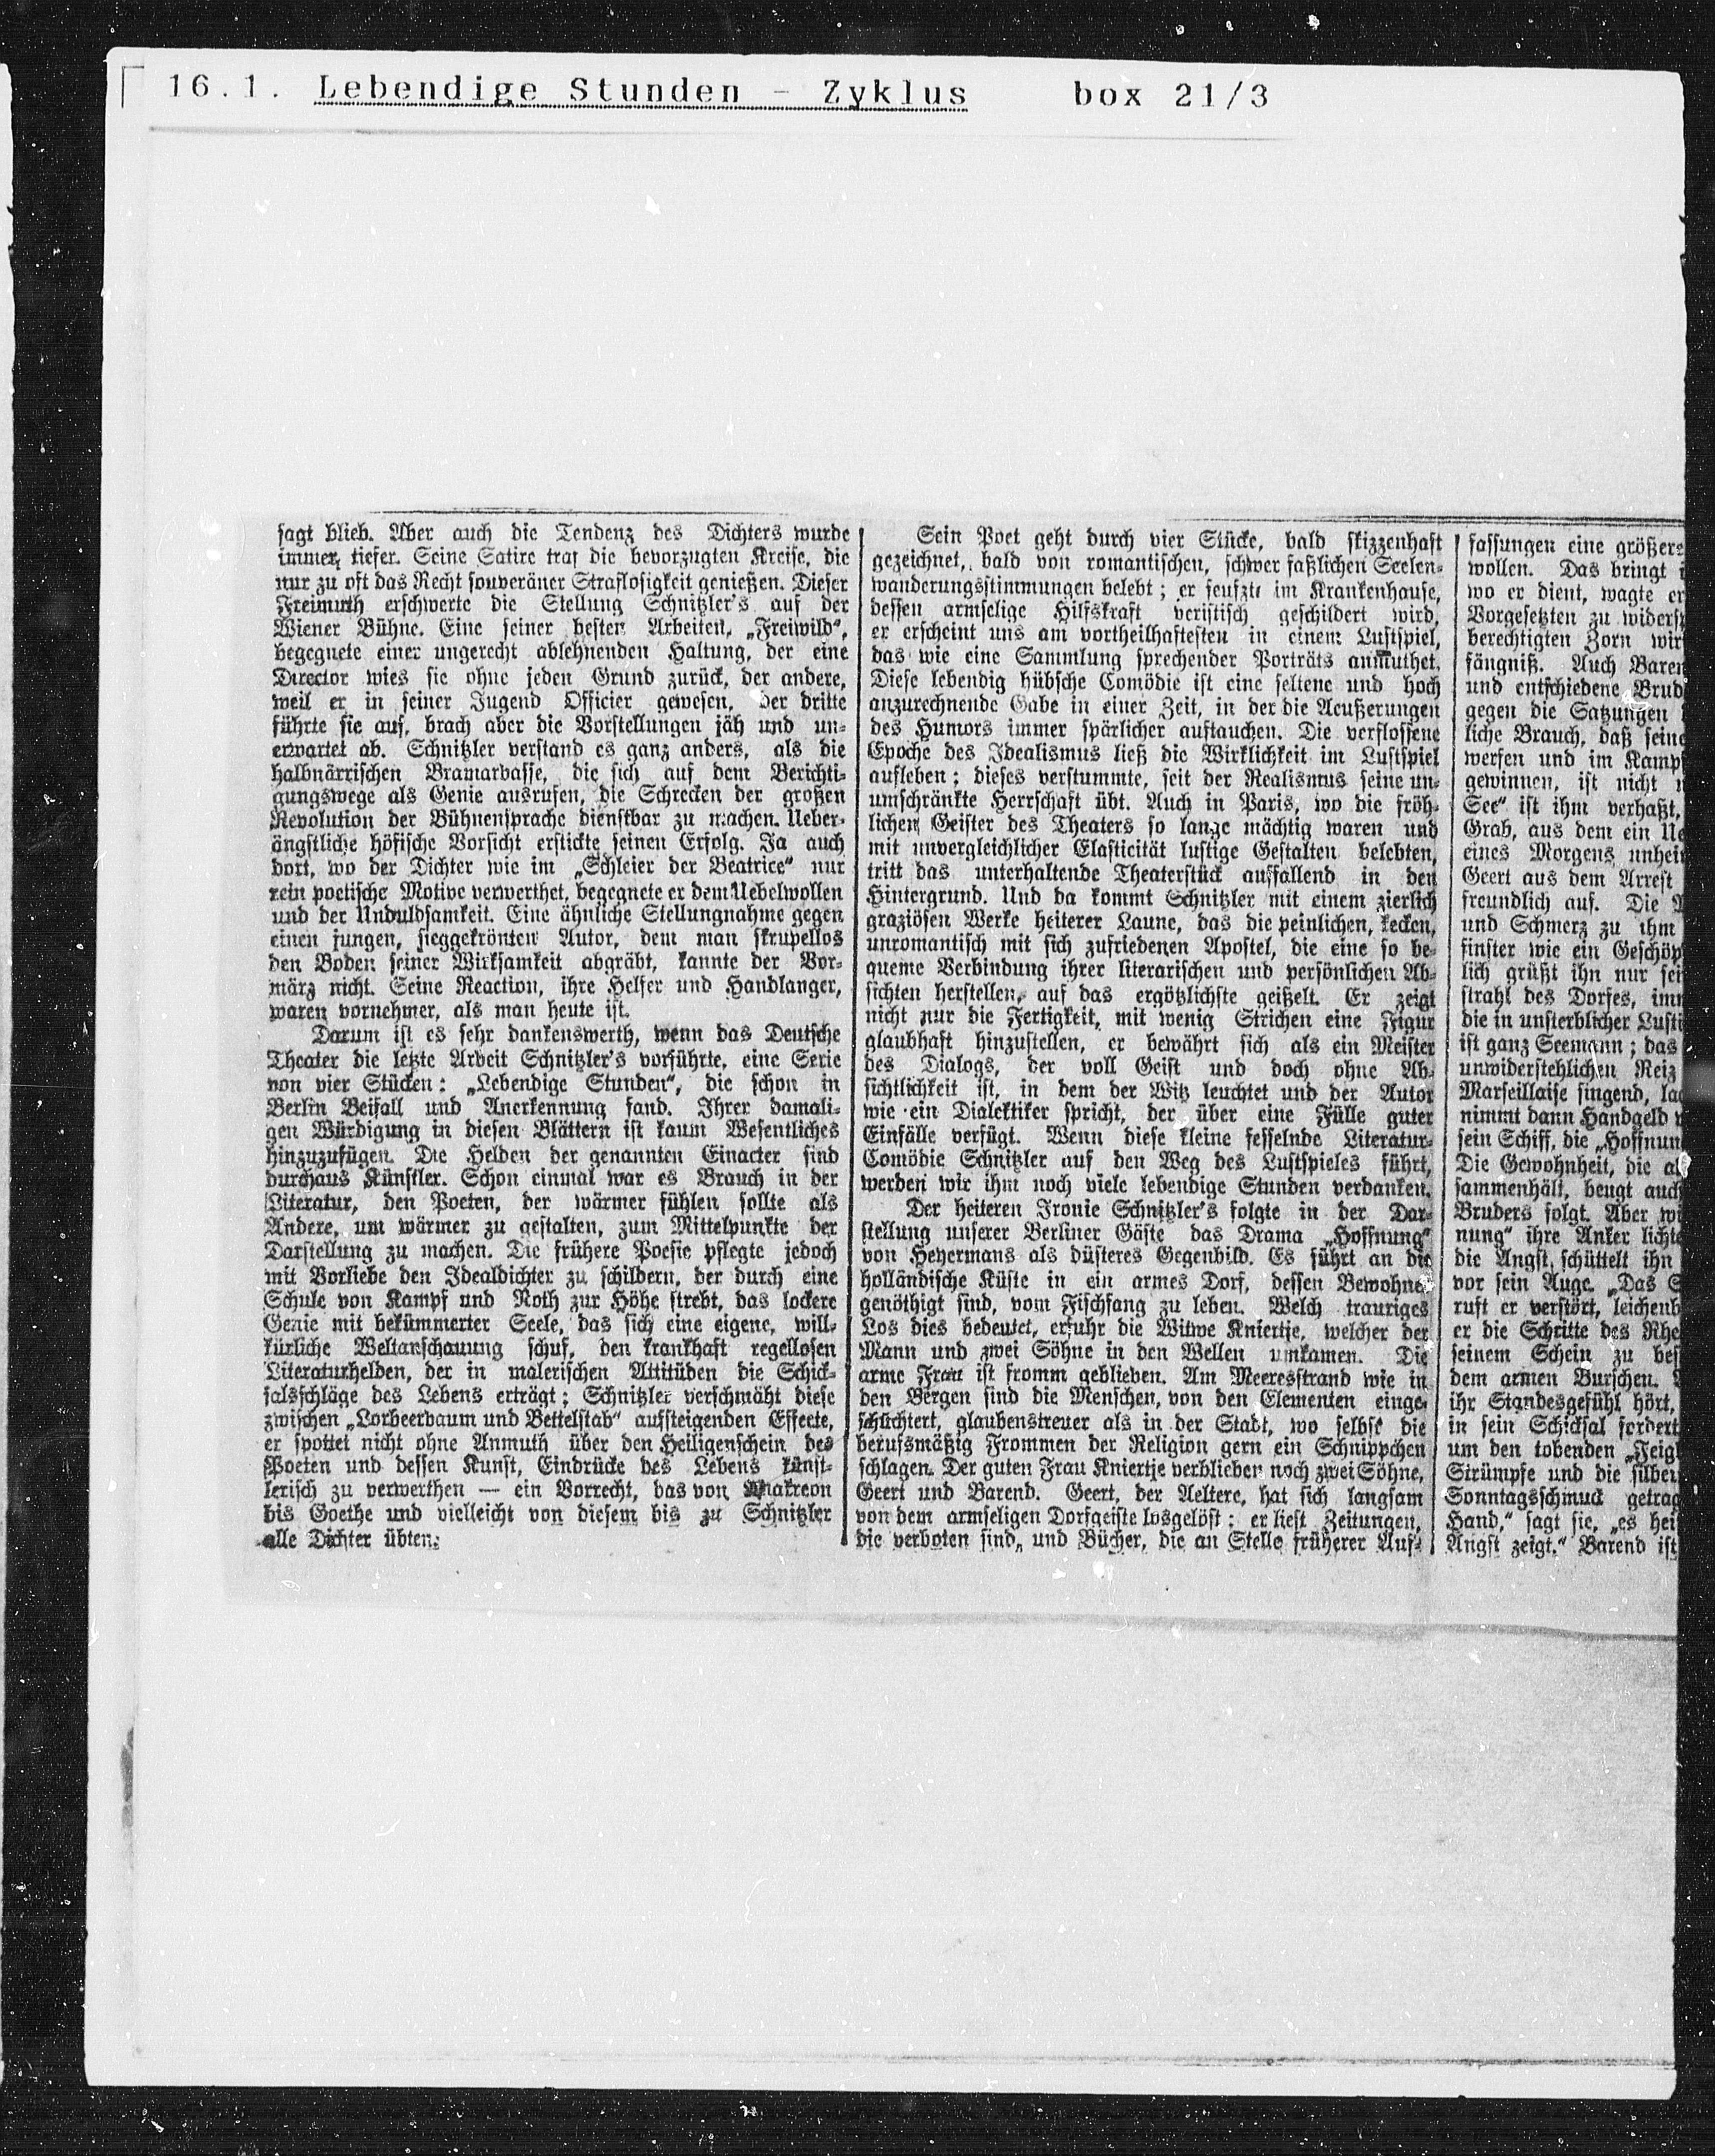 16.1. Lebendige Stunden - Zyklus box 21/3
sagt blieb. Aber auch die Tendenz des Dichters wurde
immer tiefer. Seine Satire traf die bevorzugten Kreise, die
nur zu oft das Recht souveräner Straflosigkeit genießen. Dieser
Freimuth erschwerte die Stellung Schnitzler's auf der
Wiener Bühne. Eine seiner besten Arbeiten, „Freiwild“,
begegnete einer ungerecht ablehnenden Haltung, der eine
Director wies sie ohne jeden Grund zurück, der andere,
weil er in seiner Jugend Officier gewesen, der dritte
führte sie auf, brach aber die Vorstellungen jäh und un-
erwartet ab. Schnitzler verstand es ganz anders, als die
halbnärrischen Bramarbasse, die sich auf dem Berichti-
gungswege als Genie ausrufen, die Schrecken der großen
Revolution der Bühnensprache dienstbar zu machen. Ueber-
ängstliche höfische Vorsicht erstickte seinen Erfolg. Ja auch
dort, wo der Dichter wie im „Schleier der Beatrice“ nur
rein poetische Motive verwerthet, begegnete er dem Uebelwollen
und der Unduldsamkeit. Eine ähnliche Stellungnahme gegen
einen jungen, sieggekrönten Autor, dem man skrupellos
den Boden seiner Wirksamkeit abgräbt, kannte der Vor-
märz nicht. Seine Reaction, ihre Helfer und Handlanger,
waren vornehmer, als man heute ist.
Darum ist es sehr dankenswerth, wenn das Deutsche
Theater die letzte Arbeit Schnitzler's vorführte, eine Serie
von vier Stücken: „Lebendige Stunden“, die schon in
Berlin Beifall und Anerkennung fand. Ihrer damali-
gen Würdigung in diesen Blättern ist kaum Wesentliches
hinzuzufügen. Die Helden der genannten Einacter sind
durchaus Künstler. Schon einmal war es Brauch in der
Literatur, den Poeten, der wärmer fühlen sollte als
Andere, um wärmer zu gestalten, zum Mittelpunkte der
Darstellung zu machen. Die frühere Poesie pflegte jedoch
mit Vorliebe den Idealdichter zu schildern, der durch eine
Schule von Kampf und Noth zur Höhe strebt, das lockere
Genie mit bekümmerter Seele, das sich eine eigene, will-
kürliche Weltanschauung schuf, den krankhaft regellosen
Literaturhelden, der in malerischen Attitüden die Schick-
salsschläge des Lebens erträgt; Schnitzler verschmäht diese
zwischen „Lorbeerbaum und Bettelstab“ aufsteigenden Effecte,
er spottet nicht ohne Anmuth über den Heiligenschein des
Poeten und dessen Kunst, Eindrücke des Lebens künst-
lerisch zu verwerthen — ein Vorrecht, das von Anakreon
bis Goethe und vielleicht von diesem bis zu Schnitzler
alle Dichter übten.
Sein Poet geht durch vier Stücke, bald skizzenhaft
gezeichnet, bald von romantischen, schwer faßlichen Seelen-
wanderungsstimmungen belebt; er seufzte im Krankenhause,
dessen armselige Hilfskraft veristisch geschildert wird,
er erscheint uns am vortheilhaftesten in einem Lustspiel,
das wie eine Sammlung sprechender Porträts anmuthet.
Diese lebendig hübsche Comödie ist eine seltene und hoch
anzurechnende Gabe in einer Zeit, in der die Aeußerungen
des Humors immer spärlicher auftauchen. Die verflossene
Epoche des Idealismus ließ die Wirklichkeit im Lustspiel
aufleben; dieses verstummte, seit der Realismus seine un-
umschränkte Herrschaft übt. Auch in Paris, wo die fröh-
lichen Geister des Theaters so lange mächtig waren und
mit unvergleichlicher Elasticität lustige Gestalten belebten,
tritt das unterhaltende Theaterstück auffallend in den
Hintergrund. Und da kommt Schnitzler mit einem zierlich
graziösen Werke heiterer Laune, das die peinlichen, kecken,
unromantisch mit sich zufriedenen Apostel, die eine so be-
queme Verbindung ihrer literarischen und persönlichen Ab-
sichten herstellen, auf das ergötzlichste geißelt. Er zeigt
nicht nur die Fertigkeit, mit wenig Strichen eine Figur
glaubhaft hinzustellen, er bewährt sich als ein Meister
des Dialogs, der voll Geist und doch ohne Ab-
sichtlichkeit ist, in dem der Witz leuchtet und der Autor
wie ein Dialektiker spricht, der über eine Fülle guter
Einfälle verfügt. Wenn diese kleine fesselnde Literatur-
Comödie Schnitzler auf den Weg des Lustspieles führt,
werden wir ihm noch viele lebendige Stunden verdanken.
Der heiteren Ironie Schnitzler's folgte in der Dar-
stellung unserer Berliner Gäste das Drama „Hoffnung“
von Heyermans als düsteres Gegenbild. Es führt an die
holländische Küste in ein armes Dorf, dessen Bewohner
genöthigt sind, vom Fischfang zu leben. Welch trauriges
Los dies bedeutet, erfuhr die Witwe Kniertje, welcher der
Mann und zwei Söhne in den Wellen umkamen. Die
arme Frau ist fromm geblieben. Am Meeresstrand wie in
den Bergen sind die Menschen, von den Elementen einge-
schüchtert, glaubenstreuer als in der Stadt, wo selbst die
berufsmäßig Frommen der Religion gern ein Schnippchen
schlagen. Der guten Frau Kniertje verblieben noch zwei Söhne,
Geert und Barend. Geert, der Aeltere, hat sich langsam
von dem armseligen Dorfgeiste losgelöst; er liest Zeitungen,
die verboten sind, und Bücher, die an Stelle früherer Auf-
fassungen eine größere
wollen. Das bringt
wo er dient, wagte er
Vorgesetzten zu widers
berechtigten Zorn wir
fängniß. Auch Baren
und entschiedene Brud
gegen die Satzungen
liche Brauch, daß seine
werfen und im Kampf
gewinnen, ist nicht
See“ ist ihm verhaßt,
Grab, aus dem ein Ue
eines Morgens unhei
Geert aus dem Arrest
freundlich auf. Die
und Schmerz zu ihm
finster wie ein Geschöp
lich grüßt ihn nur sei
strahl des Dorfes, imm
die in unsterblicher Lusti
ist ganz Seemann; das
unwiderstehlichen Reiz
Marseillaise singend, la
nimmt dann Handgeld
sein Schiff, die „Hoffnun
Die Gewohnheit, die al
sammenhält, beugt auch
Bruders folgt. Aber wi
nung“ ihre Anker lichte
die Angst, schüttelt ihn
vor sein Auge. „Das
ruft er verstört, leichenb
er die Schritte des Rhe
seinem Schein zu bes
dem armen Burschen.
ihr Standesgefühl hört,
in sein Schicksal fordert
um den tobenden „Feig
Strümpfe und die silber
Sonntagsschmuck getrag
Hand,“ sagt sie, „es hei
Angst zeigt.“ Barend ist